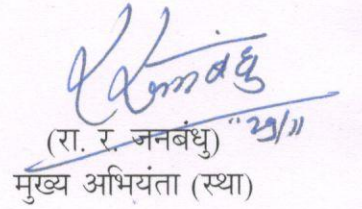 (रा. र. जनबंधु) "29/11
मुख्य अभियंता (स्था)